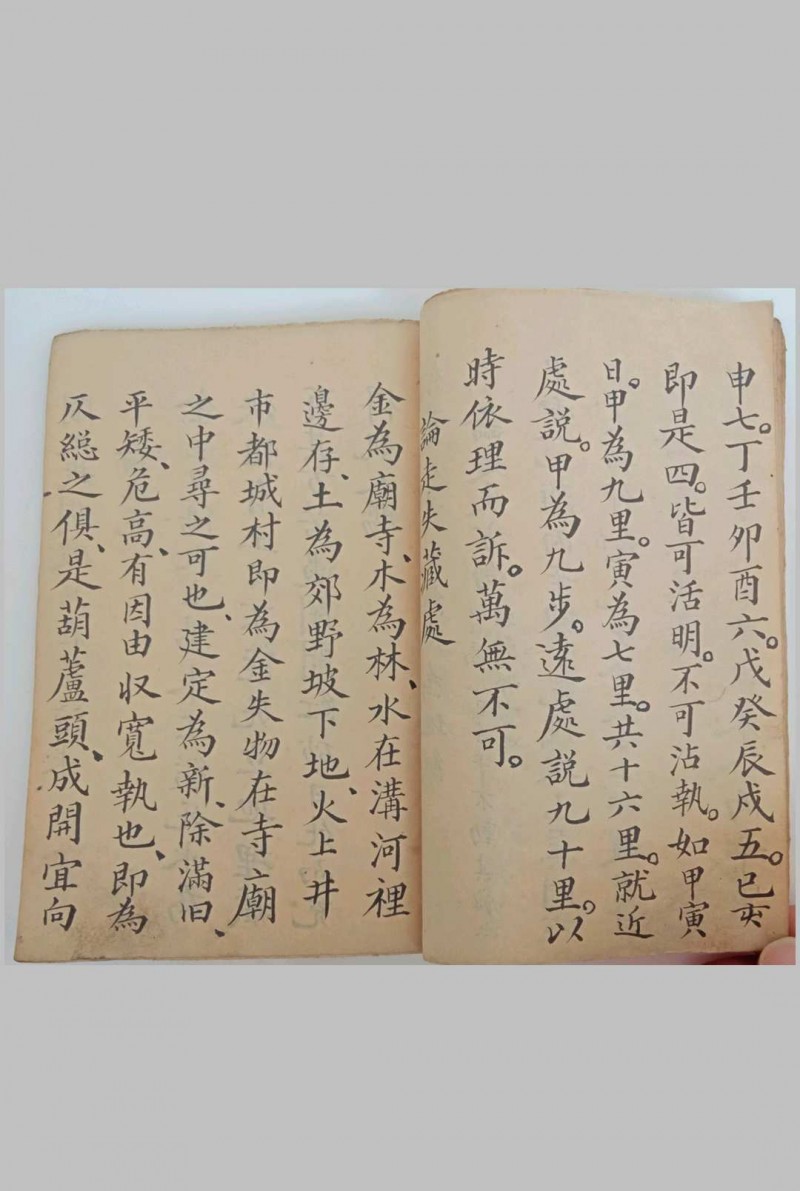 申七。丁壬卯酉六。戊癸辰戌五。巳亥
即是四。皆可活明。不可沾執。如甲寅
日。甲為九里。寅為七里。共十六里。就近
處説。甲為九步。遠處説九十里。以
時依理而訴。萬無不可。
論走失藏處
金為廟寺、木為林、水在溝河裡
邊存、土為郊野坡下地、火上井
市都城村即為金失物在寺廟
之中尋之可也、建定為新、除滿旧、
平矮、危高、有因由収寬執也、即為
仄総之俱、是葫蘆頭、成開宜向